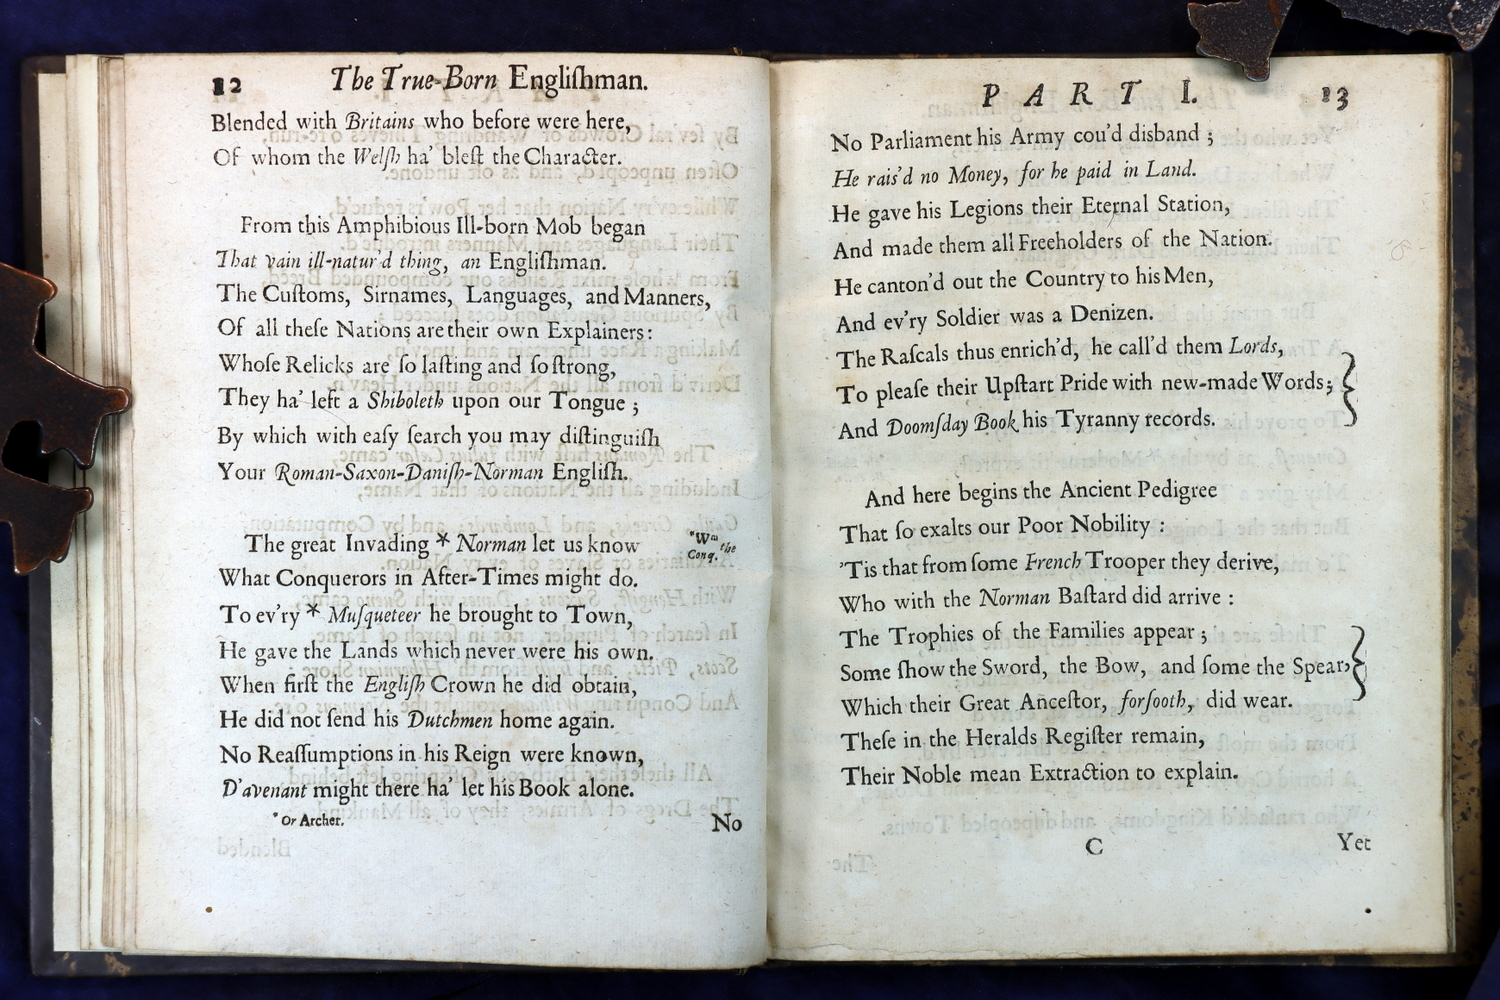 12 The True-Born Engliſhman.
Blended with Britains who before were here,
Of whom the Welſh ha' bleſt the Character.
From this Amphibious Ill-born Mob began
That vain ill-natur'd thing, an Engliſhman.
The Cuſtoms, Sirnames, Languages, and Manners,
Of all theſe Nations are their own Explainers:
Whoſe Relicks are ſo laſting and ſo ſtrong,
They ha' left a Shiboleth upon our Tongue;
By which with eaſy ſearch you may diſtinguiſh
Your Roman-Saxon-Daniſh-Norman Engliſh.
The great Invading * Norman let us know
*Wm the
Conq.
What Conquerors in After-Times might do.
To ev'ry * Muſqueteer he brought to Town,
He gave the Lands which never were his own.
When firſt the Engliſh Crown he did obtain,
He did not ſend his Dutchmen home again.
No Reaſſumptions in his Reign were known,
D'avenant might there ha' let his Book alone.
* Or Archer.
No
PART I. 13
No Parliament his Army cou'd disband;
He rais'd no Money, for he paid in Land.
He gave his Legions their Eternal Station,
And made them all Freeholders of the Nation.
He canton'd out the Country to his Men,
And ev'ry Soldier was a Denizen.
The Raſcals thus enrich'd, he call'd them Lords,
To pleaſe their Upſtart Pride with new-made Words;
And Doomſday Book his Tyranny records.
And here begins the Ancient Pedigree
That ſo exalts our Poor Nobility:
'Tis that from ſome French Trooper they derive,
Who with the Norman Baſtard did arrive:
The Trophies of the Families appear;
Some ſhow the Sword, the Bow, and ſome the Spear,
Which their Great Anceſtor, forſooth, did wear.
Theſe in the Heralds Regiſter remain,
Their Noble mean Extraction to explain.
C
Yet